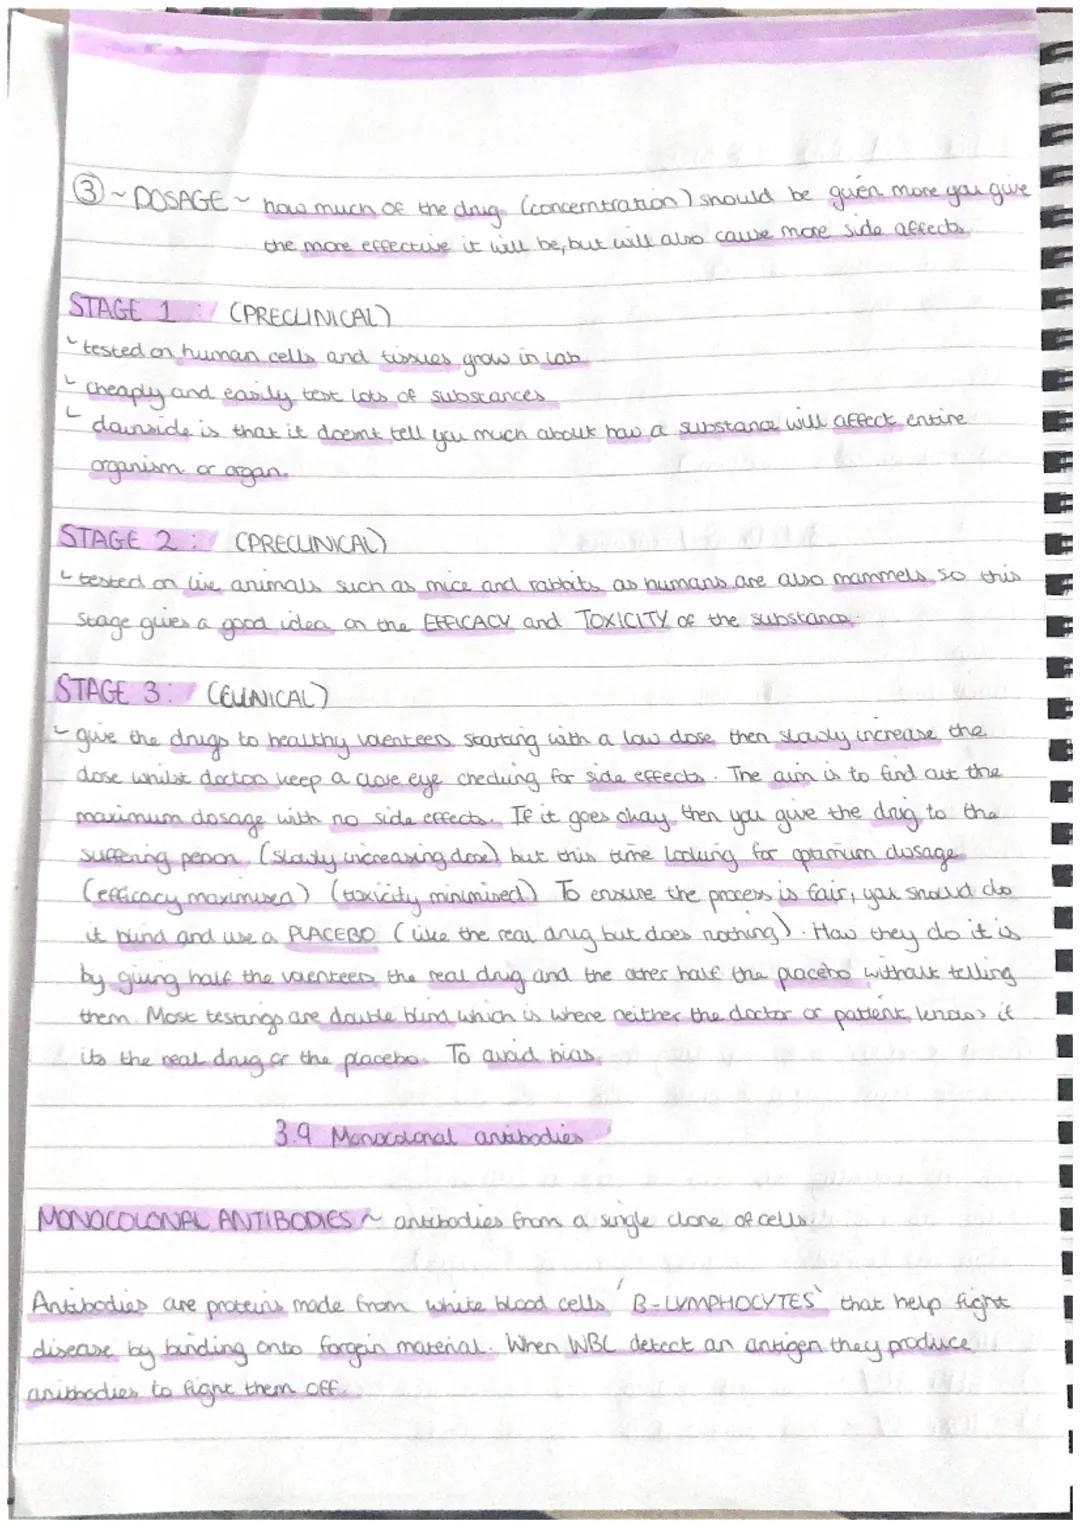 ③ ~ DOSAGE ~ how much of the drug (concerntration) should be given more you give
the more effective it will be, but will also cause more side affects.
STAGE 1 : (PRECLINICAL)
tested on human cells and tissues grow in lab
cheaply and easily test lots of substances
downside is that it doesnt tell you much about how a substance will affect entire
organism or organ.
STAGE 2 : (PRECLINICAL)
tested on live animals such as mice and rabbits as humans are also mammels so this
stage gives a good idea on the EFFICACY and TOXICITY of the substance.
STAGE 3 : (CLINICAL)
give the drugs to healthy volenteers starting with a low dose then slowly increase the
dose whilst doctors keep a close eye checking for side effects. The aim is to find out the
maximum dosage with no side effects. If it goes okay then you give the drug to the
suffering person (slowly increasing dose) but this time looking for optimum dosage
(efficacy maximised) (toxicity minimised) To ensure the process is fair, you should do
it blind and use a PLACEBO (like the real drug but does nothing). How they do it is
by giving half the volenteers the real drug and the other half the placebo without telling
them. Most testings are double blind which is where neither the doctor or patient knows if
its the real drug or the placebo. To avoid bias.
3.9 Monocolonal antibodies
MONOCOLONAL ANTIBODIES ~ antibodies from a single clone of cells.
Antibodies are proteins made from white blood cells 'B-LYMPHOCYTES' that help fight
disease by binding onto forgein material. When WBC detect an antigen they produce
anitbodies to fight them off.